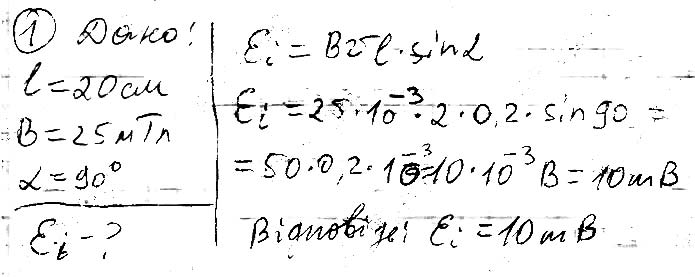 ① Дано:
l = 20 см
B = 25 мТл
α = 90°
Ɛi - ?
Ɛi = Bυl · sinα
Ɛi = 25 · 10⁻³ · 2 · 0,2 · sin 90 =
= 50 · 0,2 · 10⁻³ = 10 · 10⁻³ В = 10 mB
Відповідь: Ɛi = 10 mB